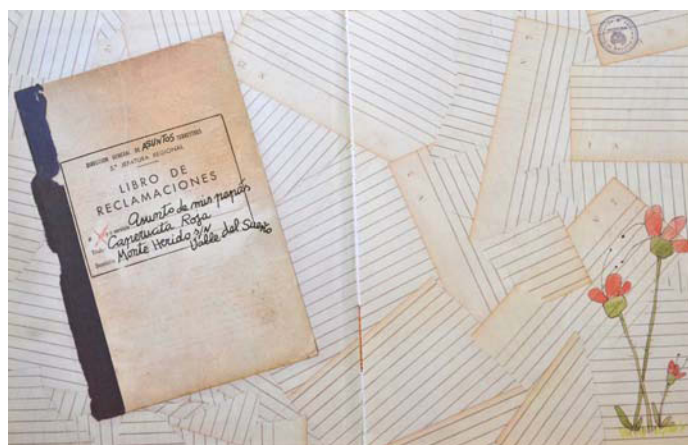 DIRECCION GENERAL DE ASUNTOS TERRITORIO
5ª JEFATURA REGIONAL
LIBRO DE
RECLAMACIONES
Asunto de mis papás
Caperucita Roja
Monte Herido s/n
Valle del Sueño